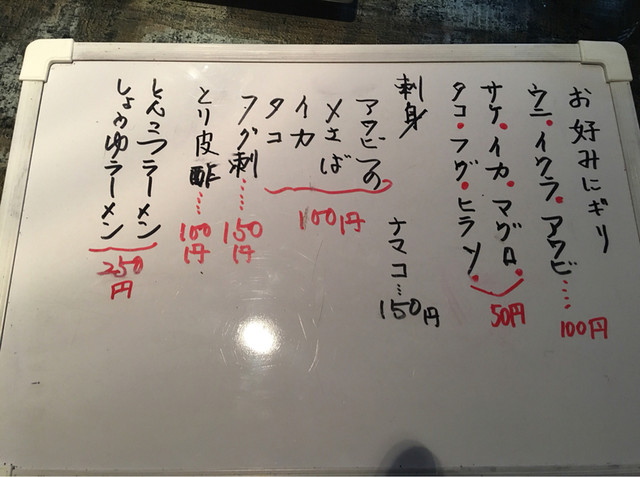 お好みにぎり
ウニ・イクラ・アワビ……100円
サケ・イカ・マグロ・
タコ・フグ・ヒラソ・
50円
刺身
ナマコ…150円
アワビつの
〆さば
イカ
タコ
100円
フグ刺……150円
とり皮酢……100円
とんこつラーメン
しょうゆラーメン
250円